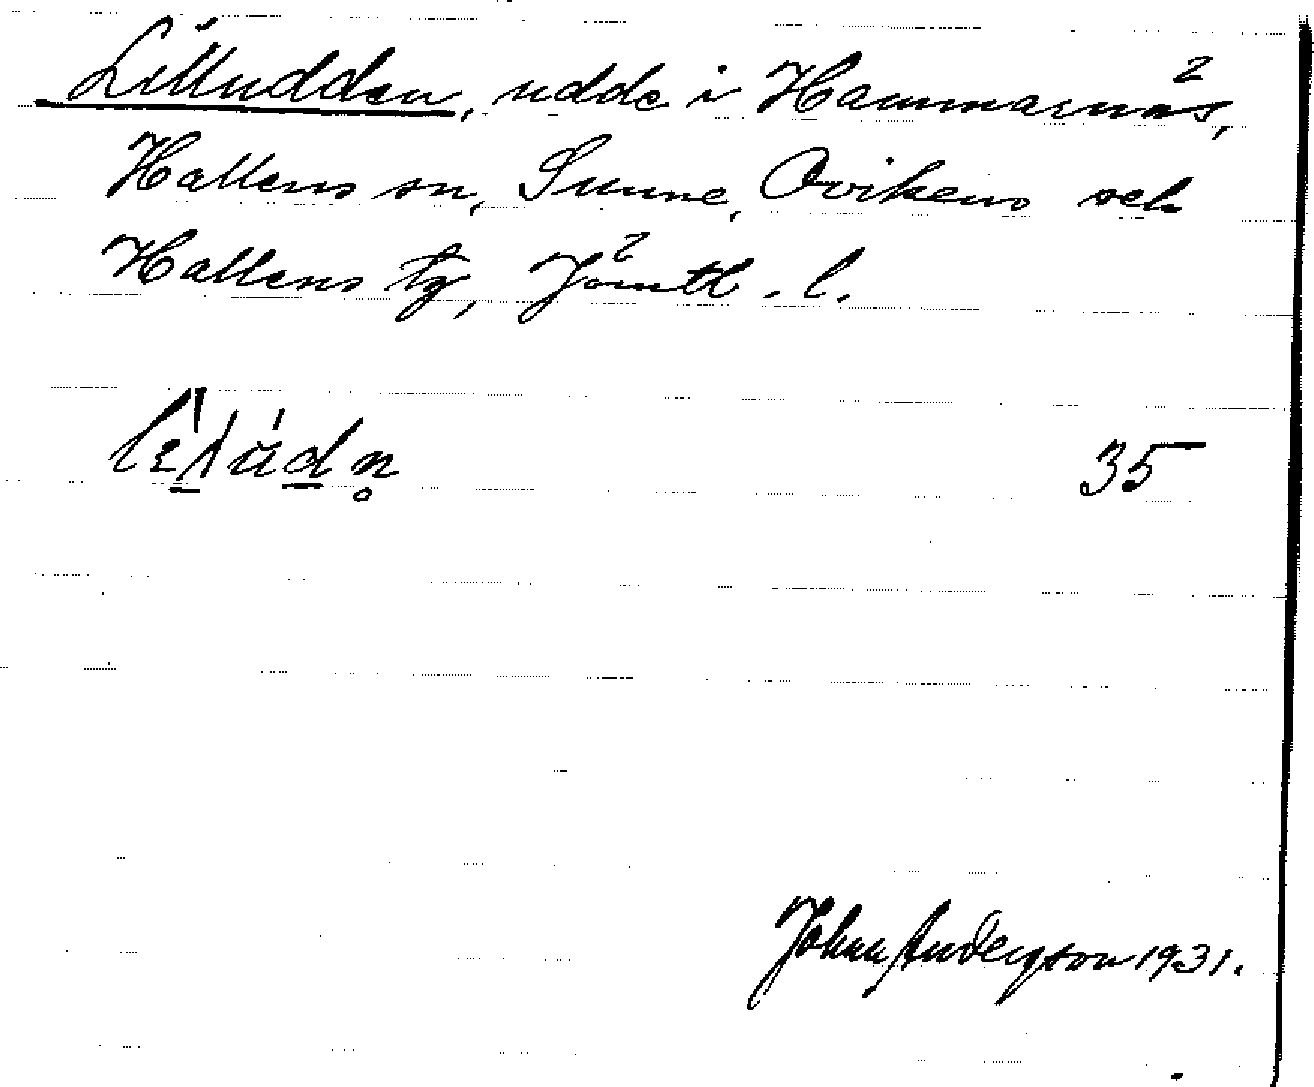 Lilludden, udde i Hammarnäs,
Hallens sn, Sunne, Ovikens och
Hallens tg, Jämtl. l.
35
John Anderson 1931.